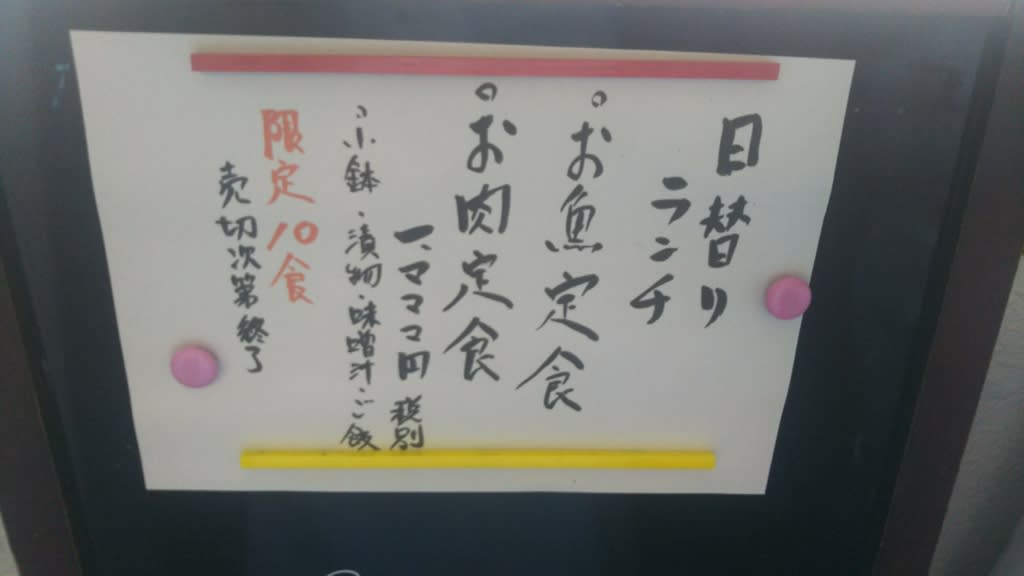 日替り
ランチ
。お魚定食
。お肉定食
一、ママママ円 税別
。小鉢・漬物・味噌汁・ご飯
限定10食
売切次第終了